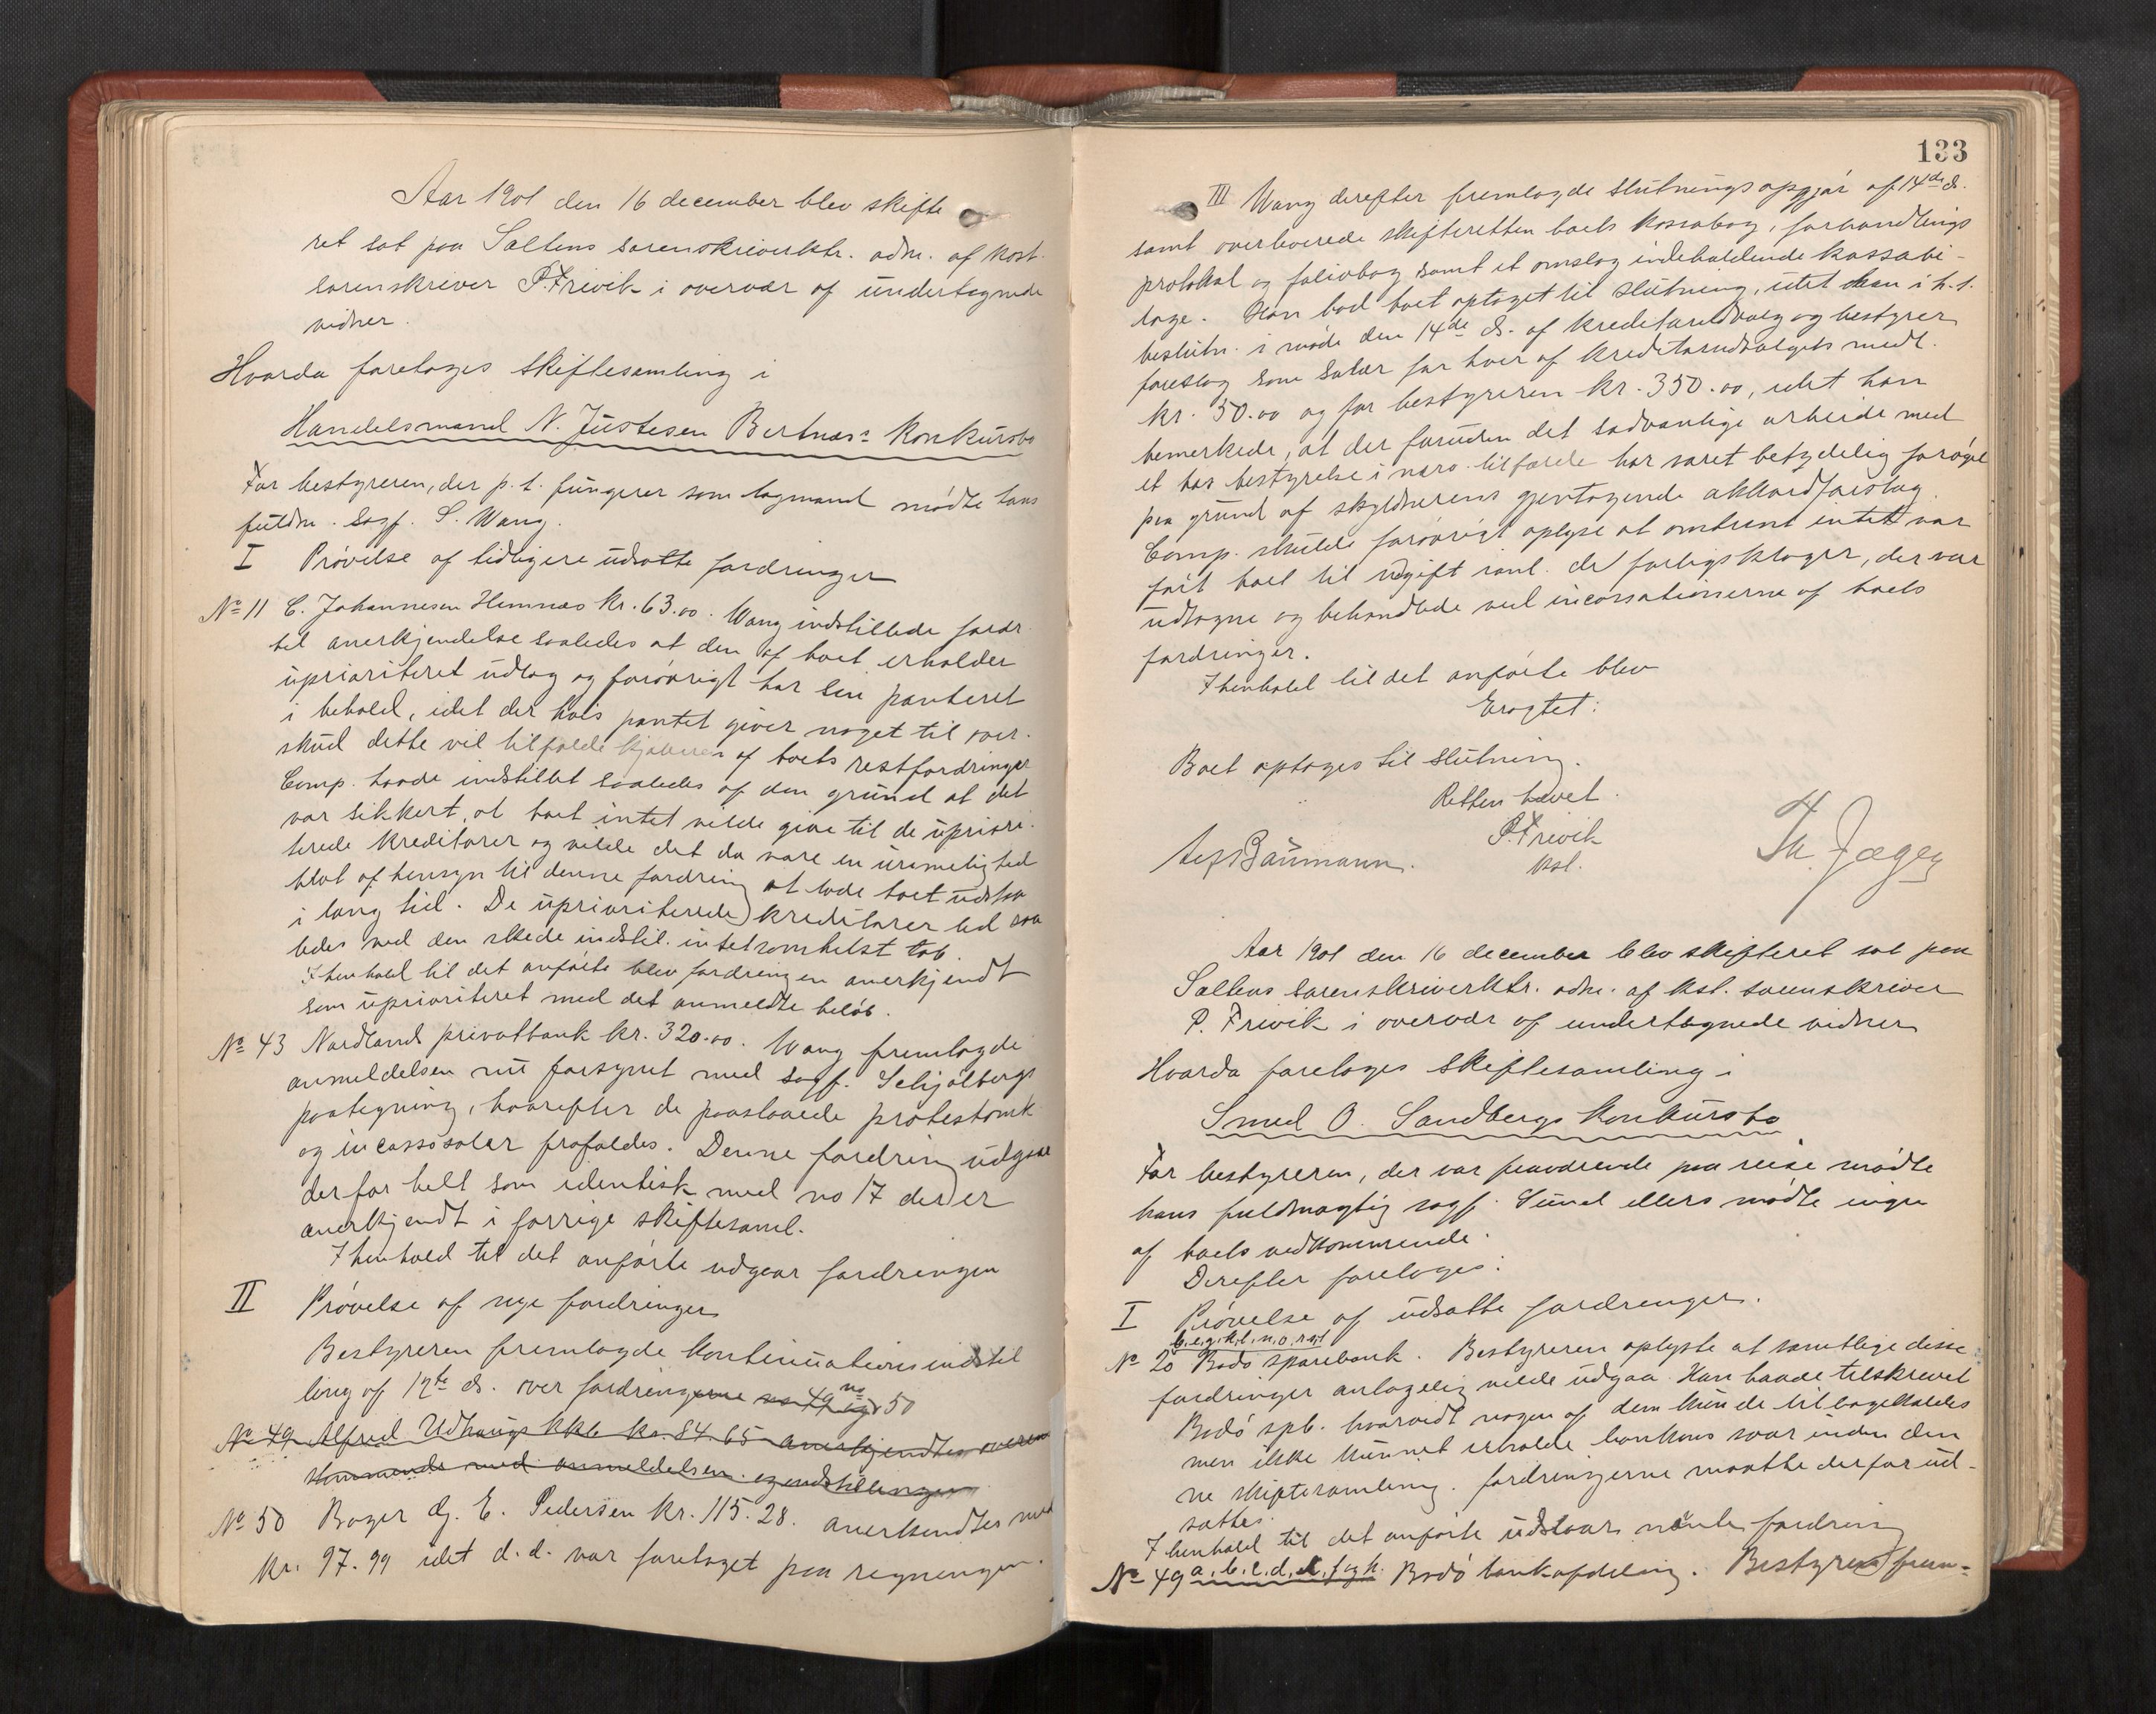 Aar 1901 den 16 december blev skifte
ret sat paa Saltens sorenskriverktr. adm. af konst.
sorenskriver P. Frivik i overvær af undertegnede
vidner.
Hvorda foretoges skiftesamling i
Handelsmand N. Justesen Bertnæs: konkursbo
For bestyreren, der p. t. fungerer som lagmand mødte hans
fuldm. sagf. S. Wang.
I Prøvelse af tidligere udsatte fordringer
No 11 C. Johannesen Hemnæs kr. 63.00. Wang indstillede fordr.
til anerkjendelse saaledes at den af boet erholder
uprioriteret udlæg og forøvrigt har sin panteret
i behold, idet der hvis pantet giver noget til over-
skud dette vil tilfalde kjøberen af boets restfordringer
Comp. havde indstillet saaledes af den grund at det
var sikkert, at boet intet vilde give til de upriori-
terede kreditorer og vilde det da være en urimelighed
blot af hensyn til denne fordring at lade boet udstaa
i lang tid. De uprioriterede kreditorer led saa
ledes ved den skede indstil. intetsomhelst tab.
I henhold til det anførte blev fordringen anerkjendt
som uprioriteret med det anmeldte beløb.
No 43 Nordlands privatbank kr. 320.00. Wang fremlagde
anmeldelsen nu forsynet med sagf. Schjølbergs
paategning, hvorefter de paastaaede protestomk.
og incassosalær frafaldes. Denne fordring udgaar
derfor helt som identisk med no 17 der er
anerkjendt i forrige skiftesaml.
I henhold til det anførte udgaar fordringen
II Prøvelse af nye fordringer
Bestyreren fremlagde kontinuationsindstil
ling af 12te ds. over fordringerne no 49 og no 50
No 49 Alfred Udhaugs kkb kr. 84.65 anerkjendtes overens
stemmende med anmeldelsen og indstillingen
No 50 Bager Dj. E. Pedersen kr. 115.28. anerkendtes med
kr. 97.99 idet d. d. var foretaget paa regningen.
133
III Wang derefter fremlagde slutningsopgjør af 14de ds.
samt overleverede skifteretten boets kassabog, forhandlings
protokol og foliobog samt et omslag indeholdende kassabi-
lage. Han bad boet optaget til slutning, idet han i h. t.
beslutn. i møde den 14de ds. af kreditorudvalg og bestyrer
foreslog som salær for hver af kreditorudvalgets medl.
kr. 50.00 og for bestyreren kr. 350.00, idet han
bemerkede, at der foruden det sedvanlige arbeide med
et bos bestyrelse i nærv. tilfælde har været betydelig forøget
paa grund af skyldnerens gjentagende akkordforslag.
Comp. skulde forøvrigt oplyse at omtrent intet var
ført boet til udgift saml. de forligsklager, der var
udtagne og behandlede ved incassationerne af boets
fordringer.
I henhold til det anførte blev
Eragtet:
Boet optages til slutning.
Retten hævet.
P. Frivik
kst.
Baumann.
Th. Jæger
Aar 1901 den 16 december blev skifteret sat paa
Saltens sorenskriverktr. adm. af kst. sorenskriver
P. Frivik i overvær af undertegnede vidner
Hvorda foretoges skiftesamling i
Smed O. Sandbergs konkursbo
For bestyreren, der var fraværende paa reise mødte
hans fuldmægtig sagf. Sund ellers mødte ingen
af boets vedkommende.
Derefter foretoges:
I Prøvelse af udsatte fordringer.
b. e. g. k. l. n. o. r og t
No 20 Bodø sparebank. Bestyreren oplyste at samtlige disse
fordringer antagelig vilde udgaa. Han havde tilskrevet
Bodø spb. hvorvidt nogen af dem kunde tilbagekaldes
men ikke kunnet erholde bankens svar inden den
ne skiftesamling. Fordringerne maatte derfor ud-
sættes.
I henhold til det anførte udstaar nævnte fordring
No 49 a. b. c. d. e. f og h. Bodø bankafdeling. Bestyreren frem-